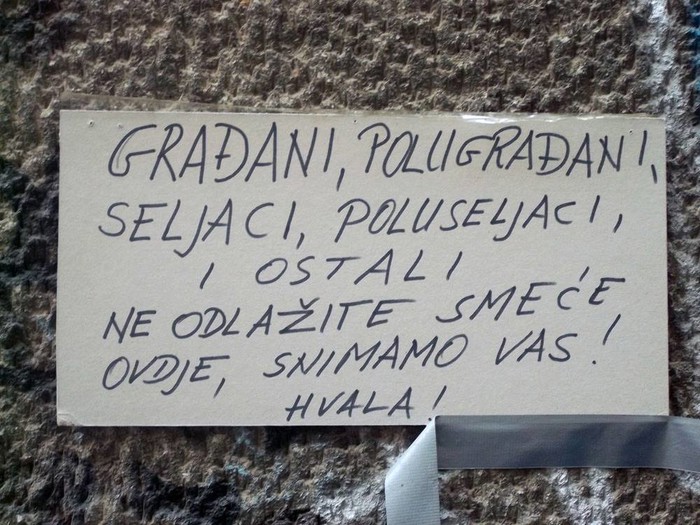 GRAĐANI, POLUGRAĐANI,
SELJACI, POLUSELJACI,
I OSTALI
NE ODLAŽITE SMEĆE
OVDJE, SNIMAMO VAS!
HVALA!